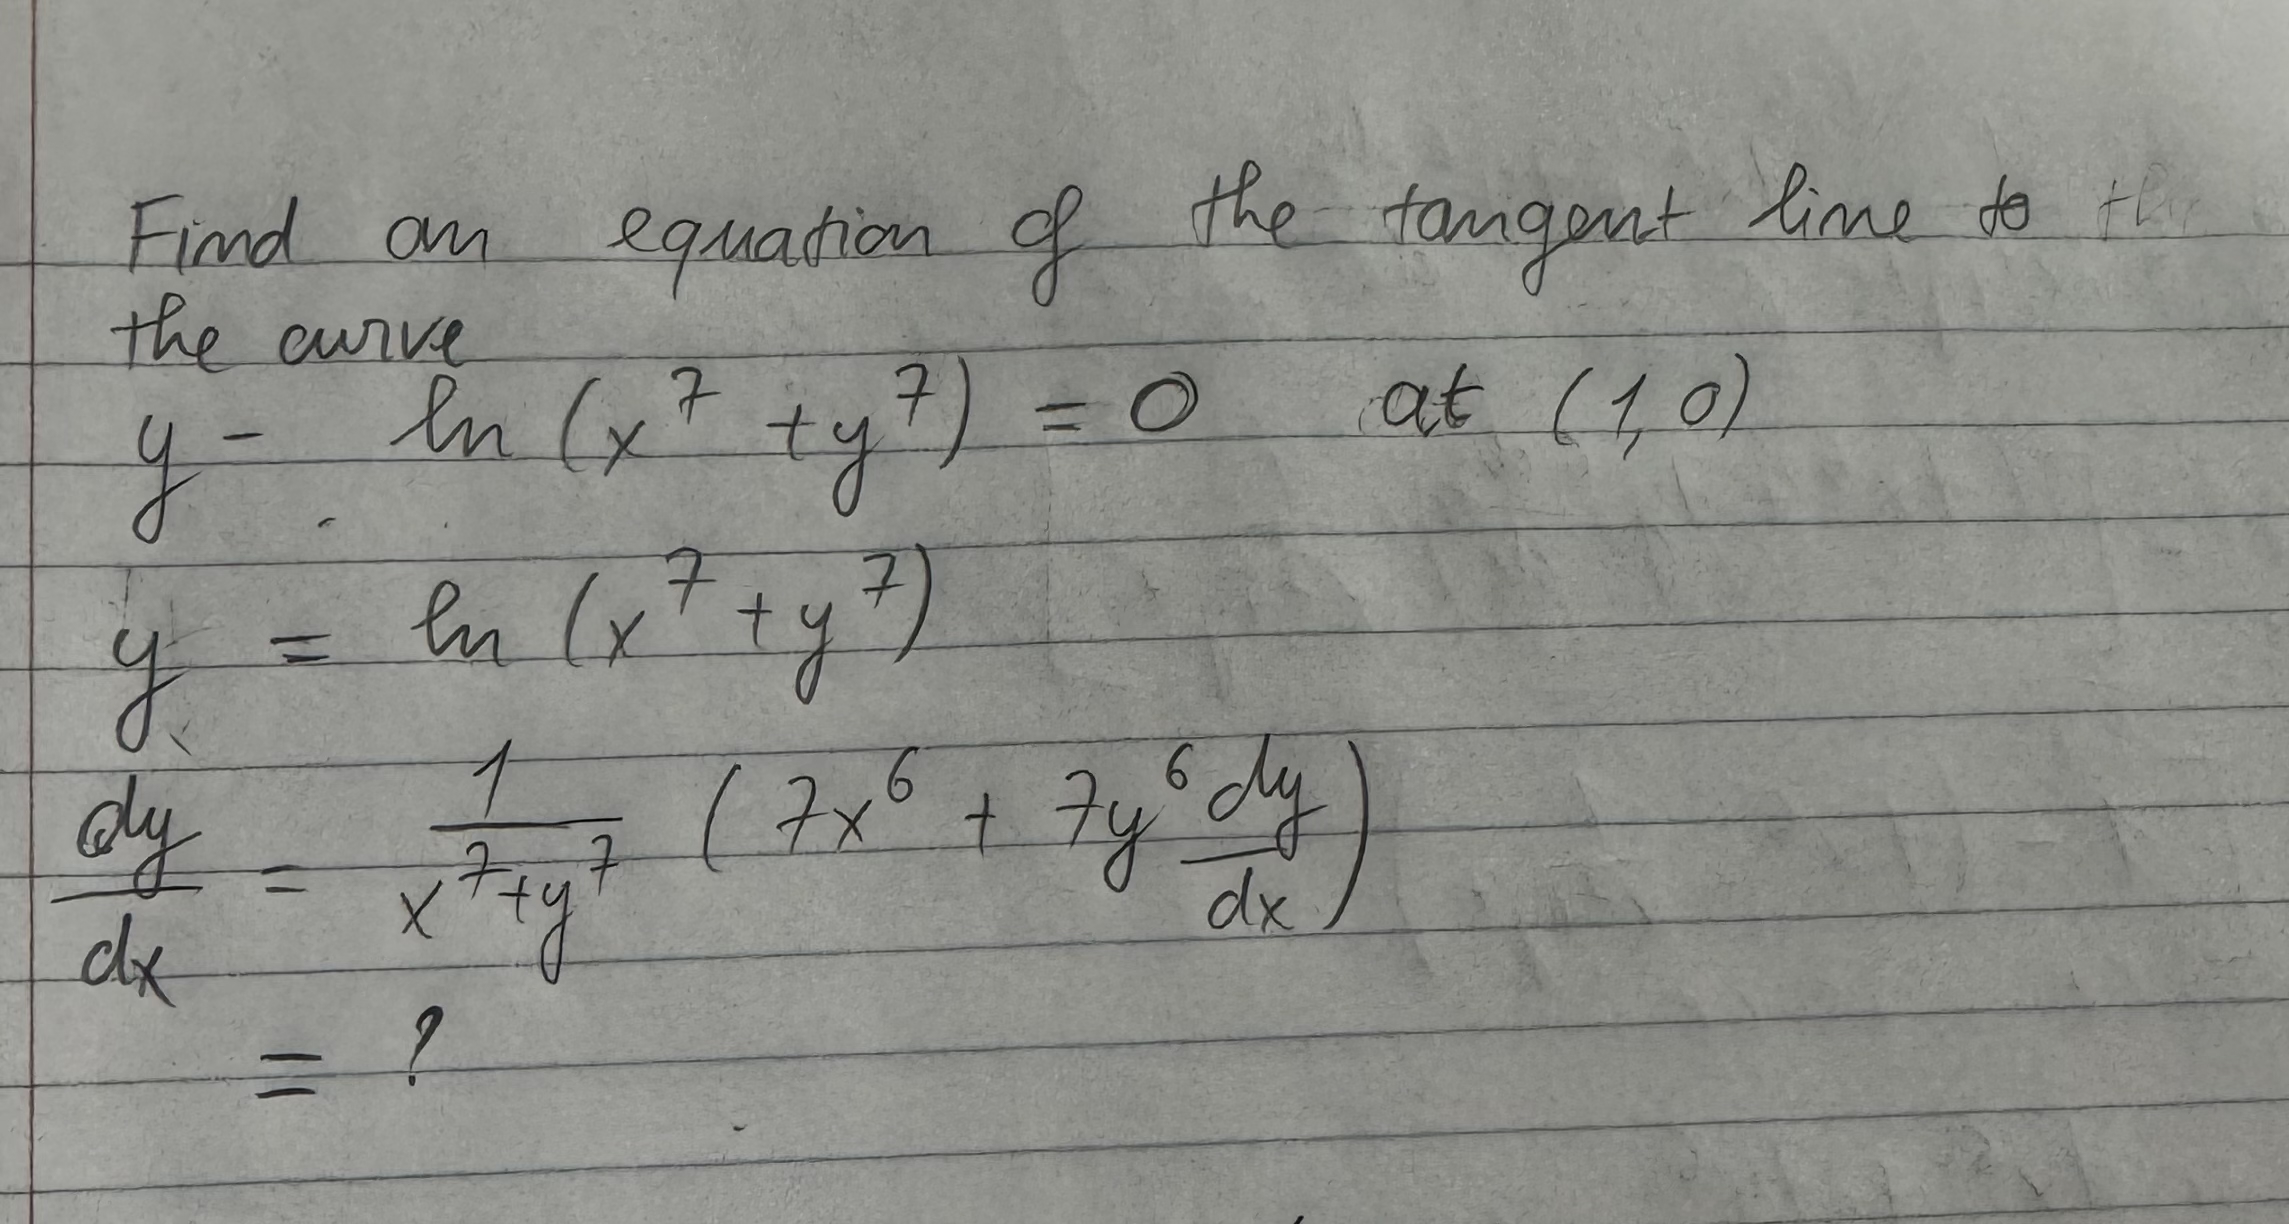 Find an equation of the tangent line to th
the curve
y - ln (x^7 + y^7) = 0 at (1, 0)
y = ln (x^7 + y^7)
dy/dx = 1/(x^7 + y^7) (7x^6 + 7y^6 dy/dx)
= ?